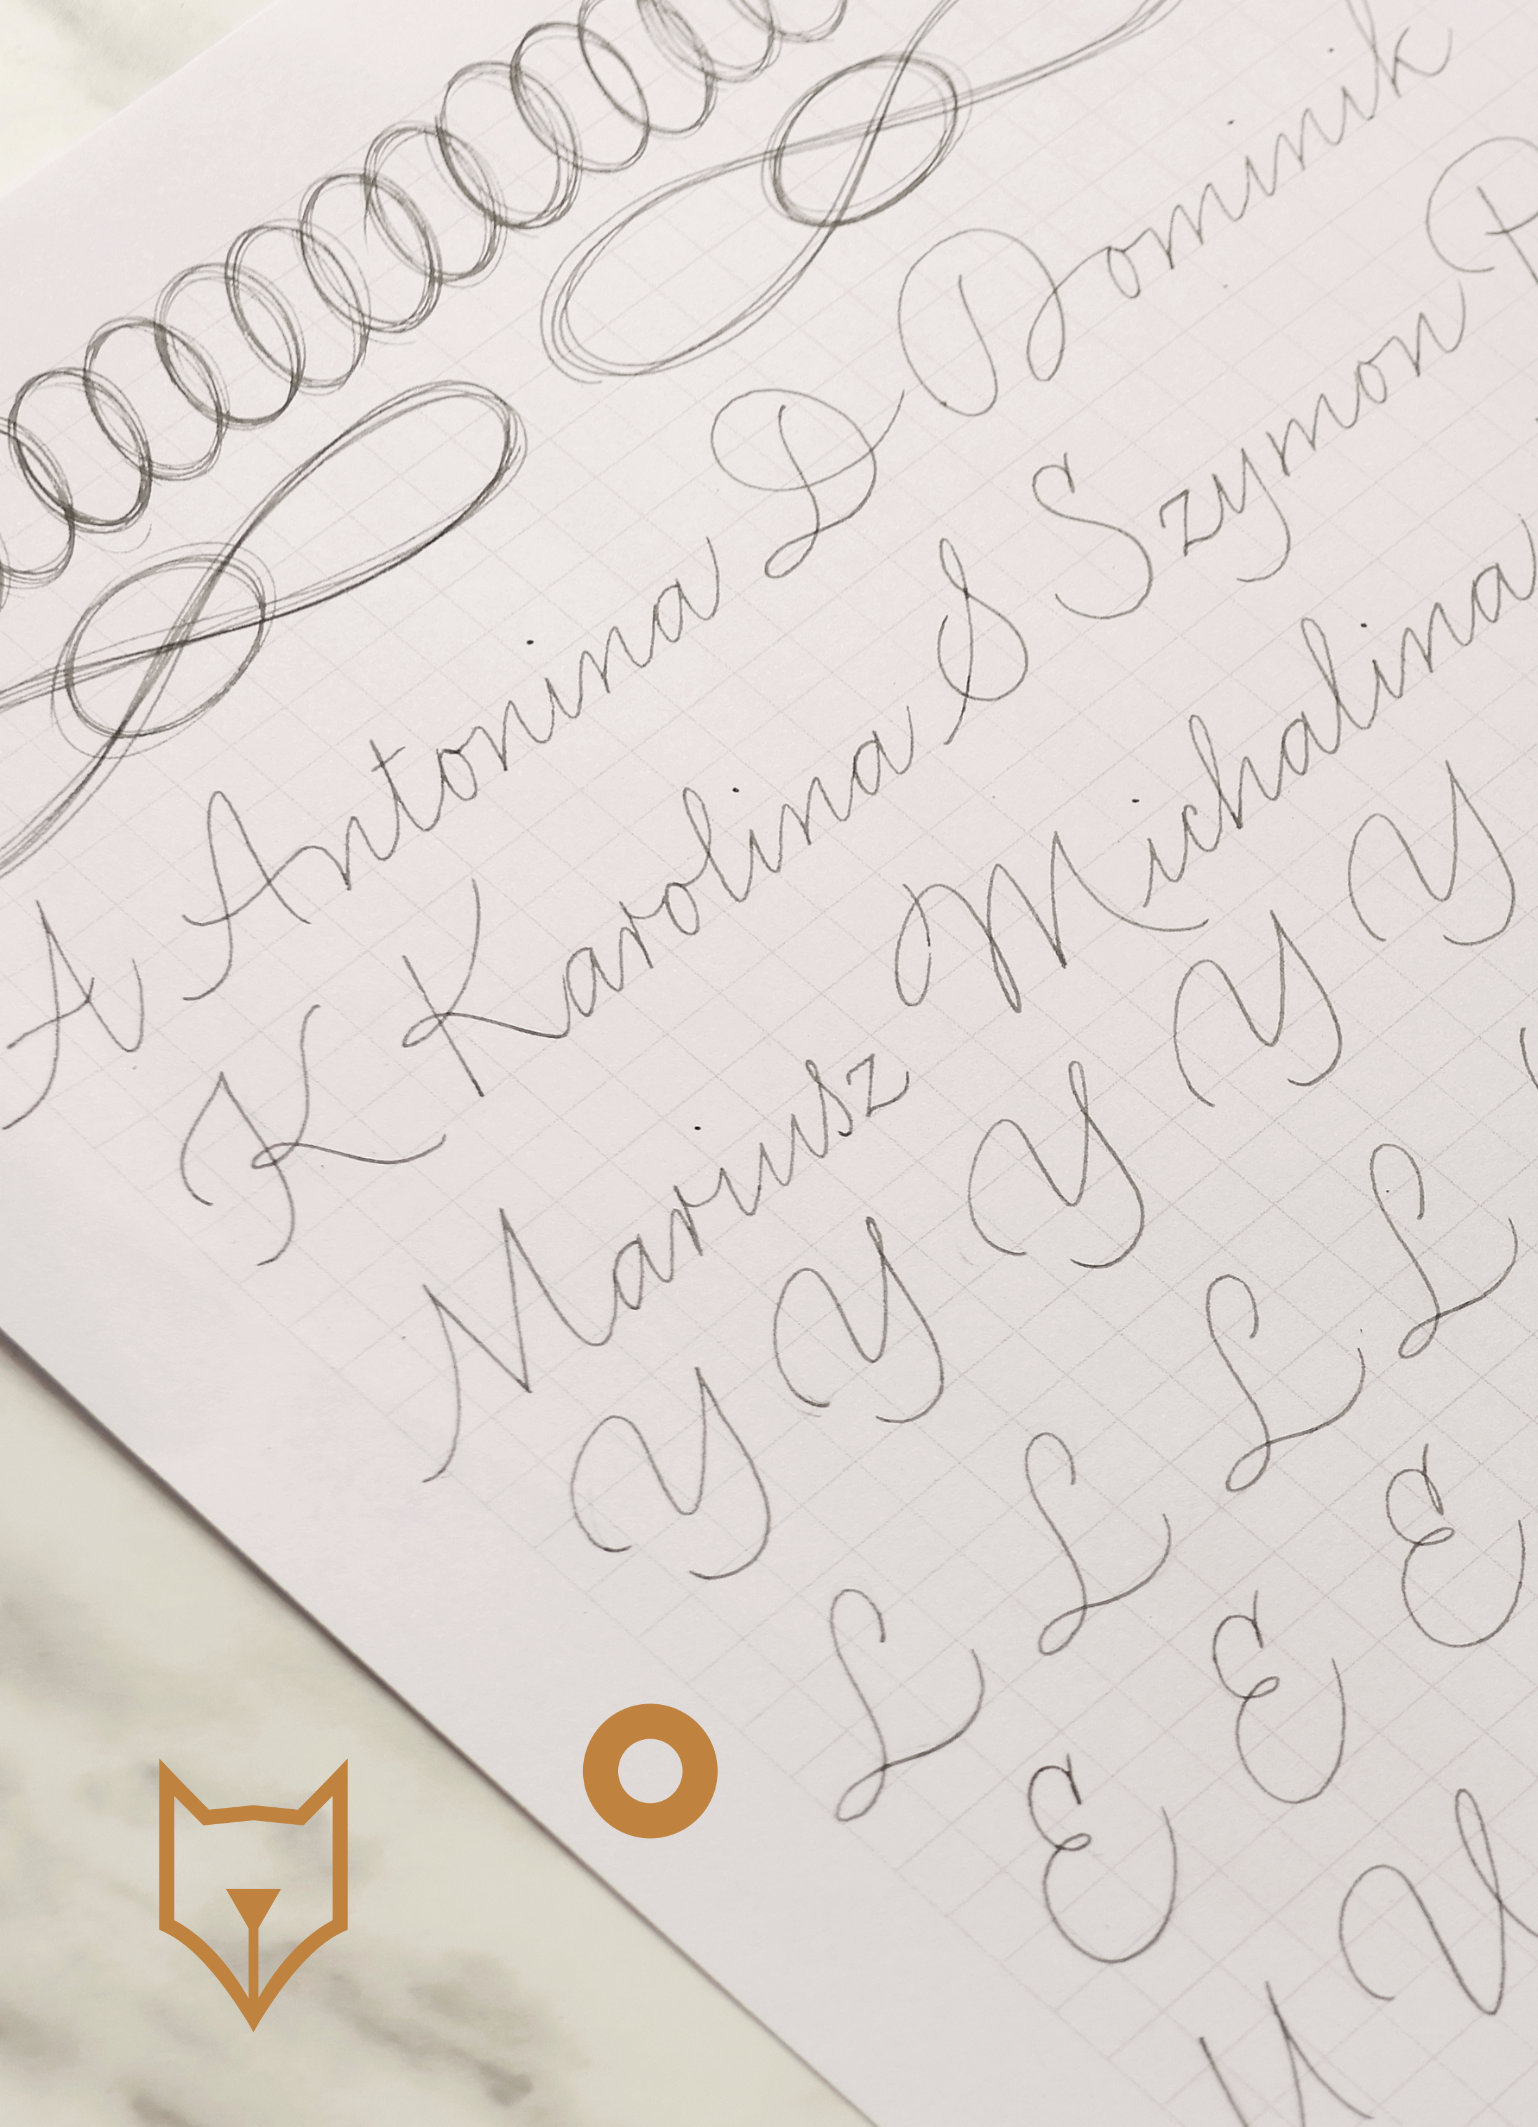 A Antonina D Dominik
K Karolina S Szymon
Mariusz Michalina
Y Y Y Y Y
L L L L
E E E
U